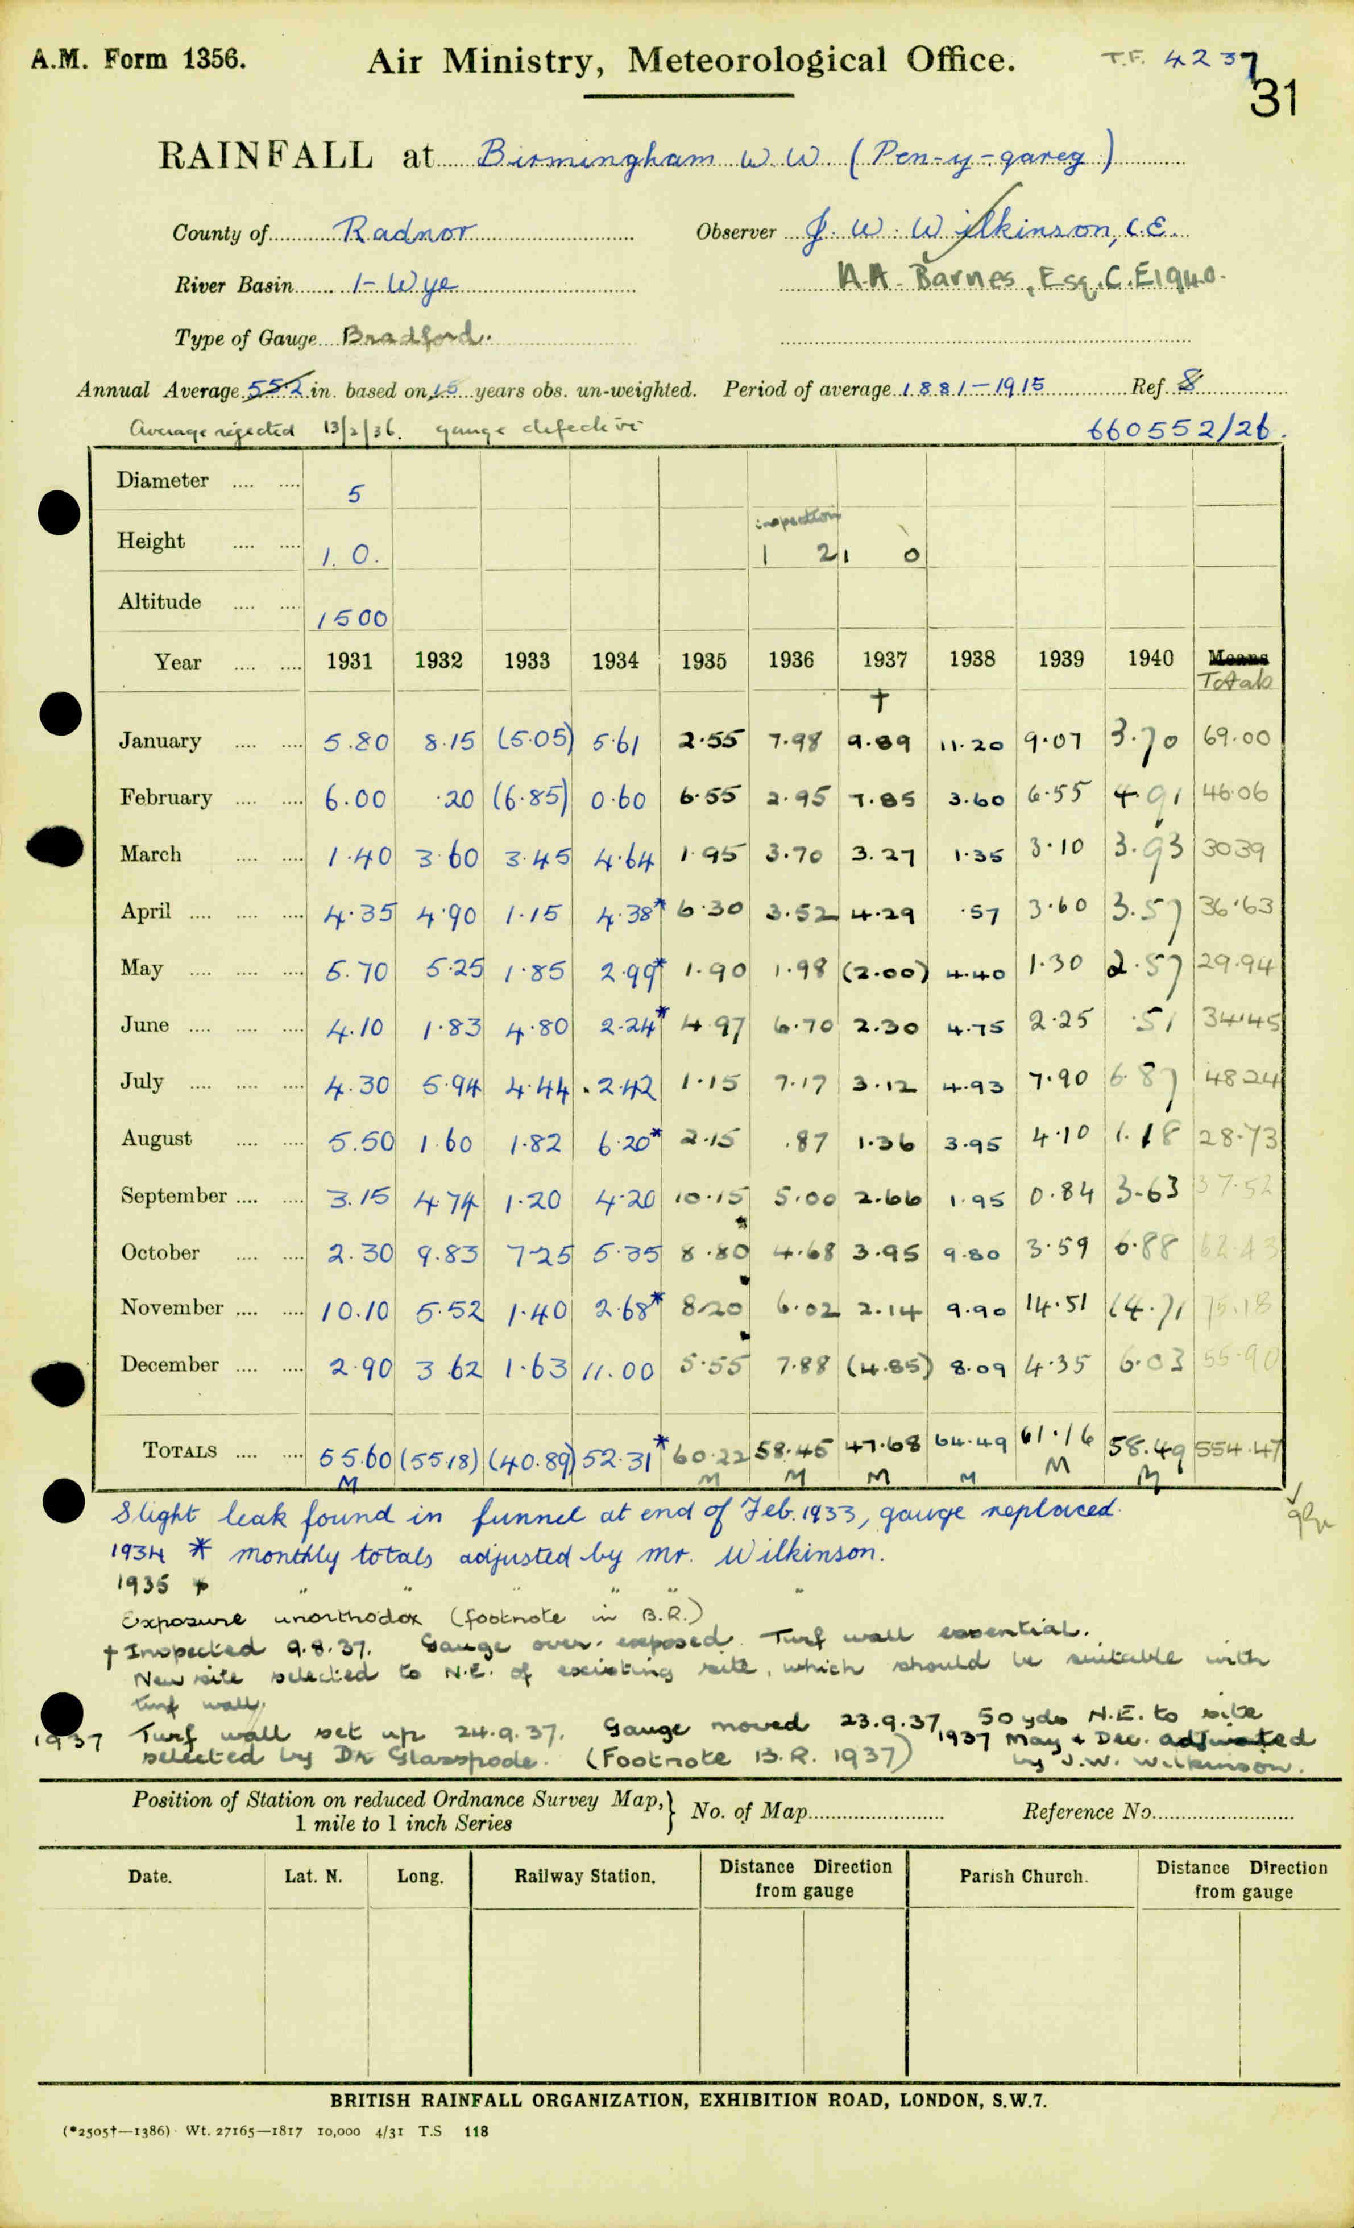 A.M. Form 1356. Air Ministry, Meteorological Office. T.F. 4237
31
RAINFALL at Birmingham W.W. (Pen-y-gareg)
County of Radnor Observer J. W. Wilkinson, C.E.
River Basin 1- Wye A.A. Barnes, Esq. C.E 1940.
Type of Gauge Bradford.
Annual Average 55.2 in. based on 15 years obs. un-weighted. Period of average 1881-1915 Ref. 8
Average rejected 13/2/36. gauge defective 660552/26.
Diameter .... .... 5
inspection
Height .... .... 1. 0. 1 2 1 0
Altitude .... .... 1500
Year .... .... 1931 1932 1933 1934 1935 1936 1937 1938 1939 1940 Means
† Totals
January .... .... 5.80 8.15 (5.05) 5.61 2.55 7.98 9.89 11.20 9.07 3.70 69.00
February .... .... 6.00 .20 (6.85) 0.60 6.55 2.95 7.85 3.60 6.55 4.91 46.06
March .... .... 1.40 3.60 3.45 4.64 1.95 3.70 3.27 1.35 3.10 3.93 30 39
April .... .... .... 4.35 4.90 1.15 4.38* 6.30 3.52 4.29 .57 3.60 3.57 36.63
May .... .... .... 5.70 5.25 1.85 2.99* 1.90 1.98 (2.00) 4.40 1.30 2.57 29.94
June .... .... .... 4.10 1.83 4.80 2.24* 4.97 6.70 2.30 4.75 2.25 .51 34.45
July .... .... .... 4.30 5.94 4.44 2.42 1.15 7.17 3.12 4.93 7.90 6.87 48 24
August .... .... 5.50 1.60 1.82 6.20* 2.15 .87 1.36 3.95 4.10 1.18 28.73
September .... .... 3.15 4.74 1.20 4.20 10.15 5.00 2.66 1.95 0.84 3.63 37.52
October .... .... 2.30 9.83 7.25 5.35 8.80 4.68 3.95 9.80 3.59 6.88 62.43
November .... .... 10.10 5.52 1.40 2.68* 8.20 6.02 2.14 9.90 14.51 14.71 75.18
December .... .... 2.90 3.62 1.63 11.00 5.55 7.88 (4.85) 8.09 4.35 6.03 55.90
TOTALS .... .... 55.60 (55.18) (40.89) 52.31* 60.22 58.45 47.68 64.49 61.16 58.49 554.47
M M M M M M M
Slight leak found in funnel at end of Feb. 1933, gauge replaced.
1934 * monthly totals adjusted by mr. Wilkinson.
1935 * " " " " " "
Exposure unorthodox (footnote in B.R.)
† Inspected 9.8.37. Gauge over-exposed. Turf wall essential.
New site selected to N.E. of existing site, which should be suitable with
turf wall.
1937 Turf wall set up 24.9.37. Gauge moved 23.9.37 50 yds N.E. to site
selected by Dr Glasspoole. (Footnote B.R. 1937) 1937 May & Dec. adjusted
by J.W. Wilkinson.
Position of Station on reduced Ordnance Survey Map, } No. of Map Reference No.
1 mile to 1 inch Series
Date. Lat. N. Long. Railway Station. Distance Direction Parish Church. Distance Direction
from gauge from gauge
BRITISH RAINFALL ORGANIZATION, EXHIBITION ROAD, LONDON, S.W.7.
(*2505†—1386) Wt. 27165—1817 10,000 4/31 T.S 118